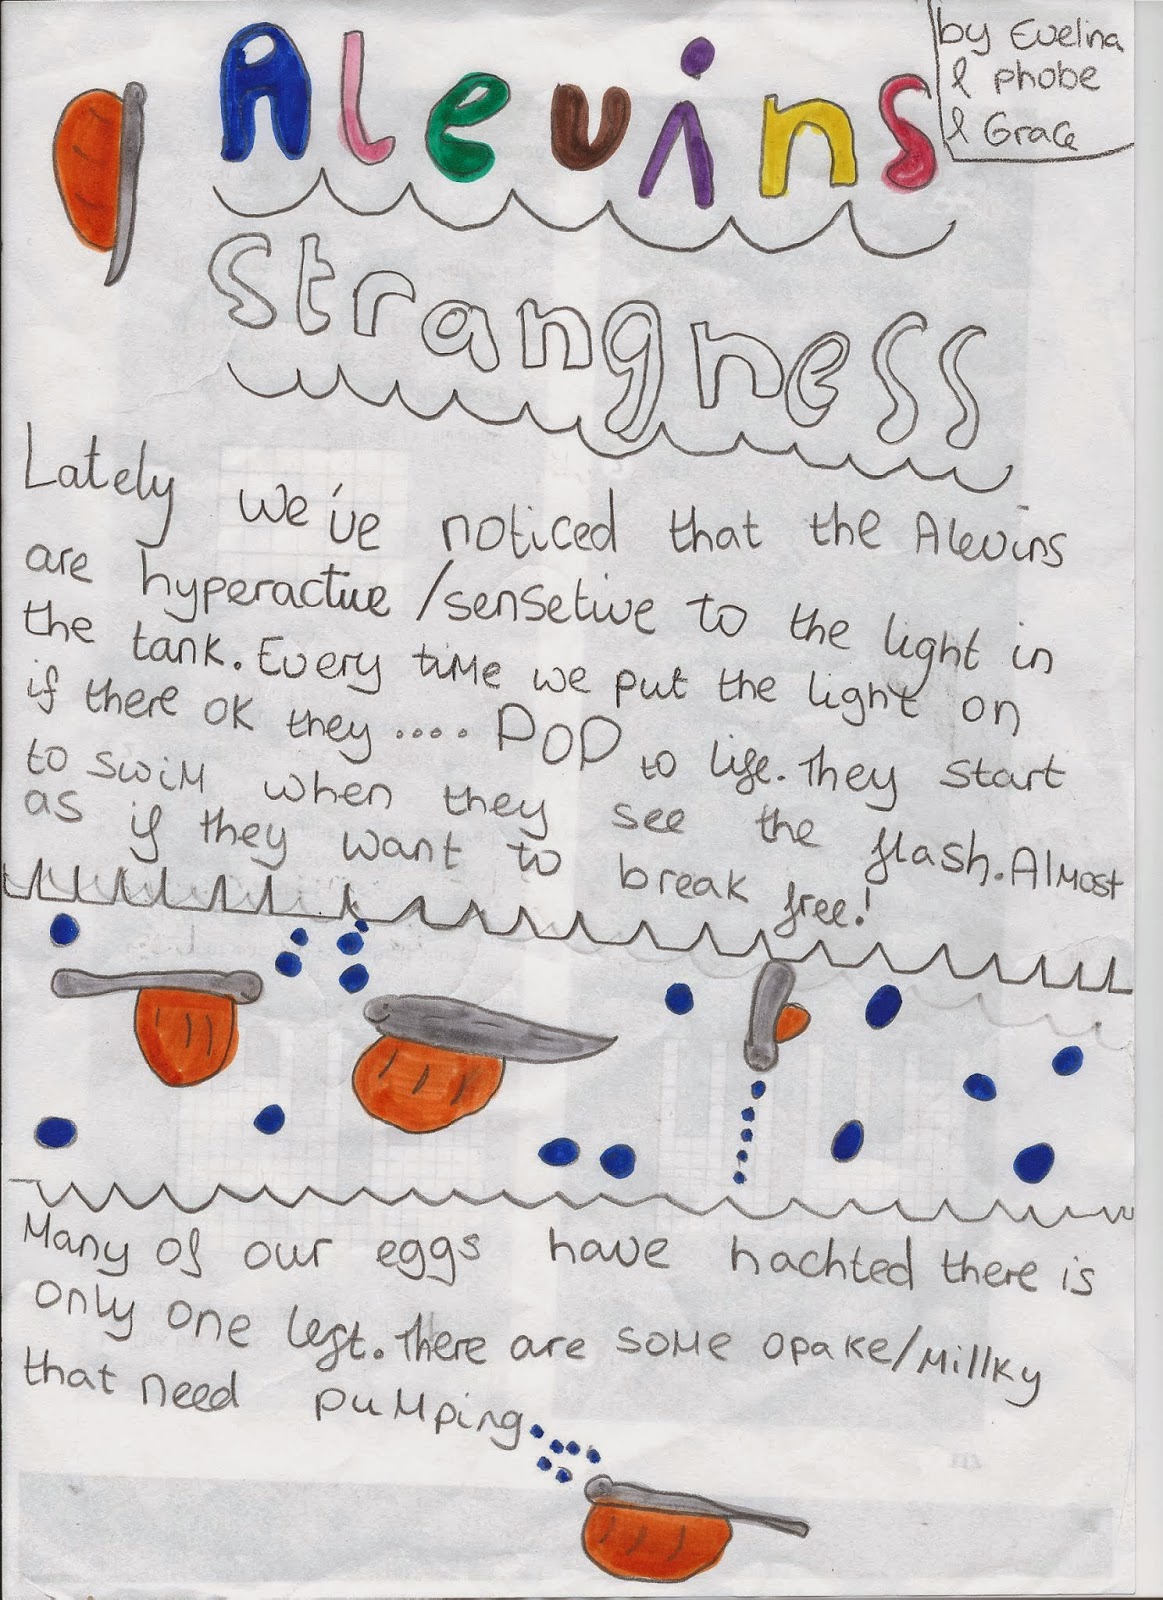 Alevins
by Evelina
& phobe
& Grace
Strangness
Lately we've noticed that the Alevins
are hyperactive/sensetive to the light in
the tank. Every time we put the light on
if there ok they .... POP to life. They start
to swim when they see the flash. Almost
as if they want to break free!
Many of our eggs have hachted there is
only one left. There are some opake/millky
that need pumping.